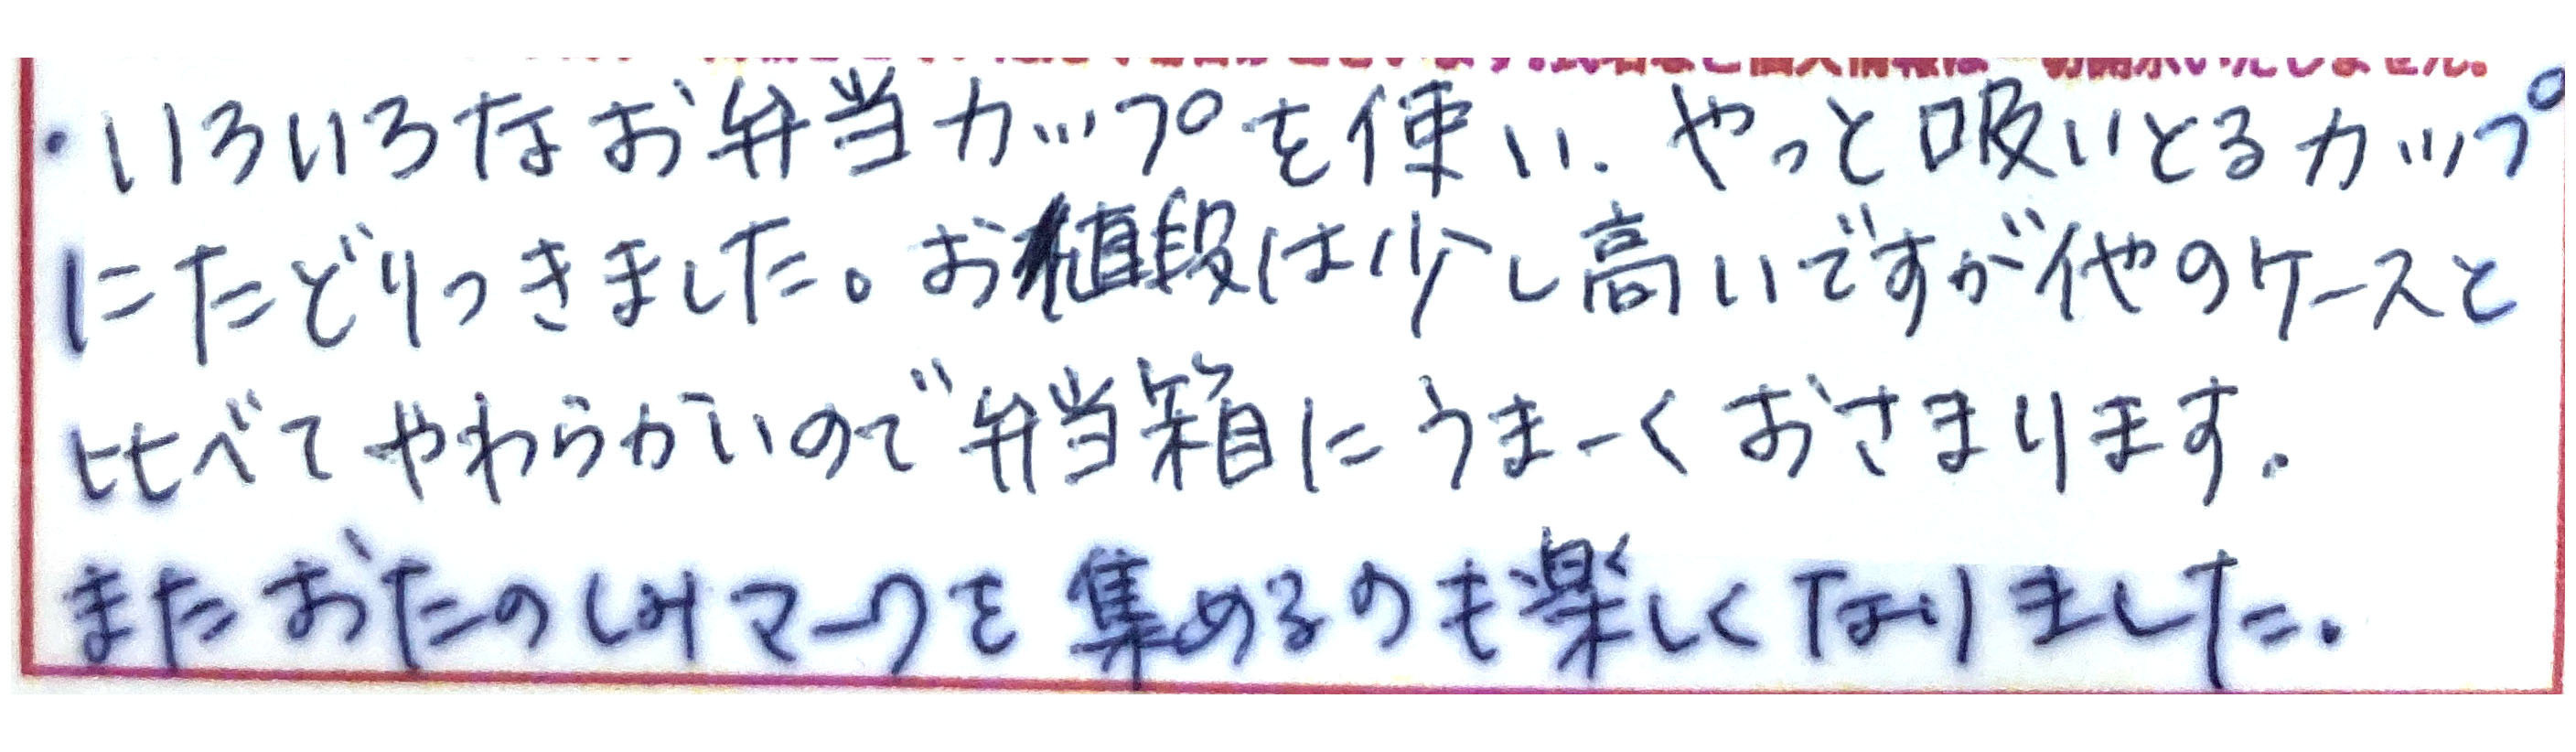 ・いろいろなお弁当カップを使い、やっと吸いとるカップ
にたどりつきました。お値段は少し高いですが他のケースと
比べてやわらかいので弁当箱にうまーくおさまります。
またおたのしみマークを集めるのも楽しくなりました。